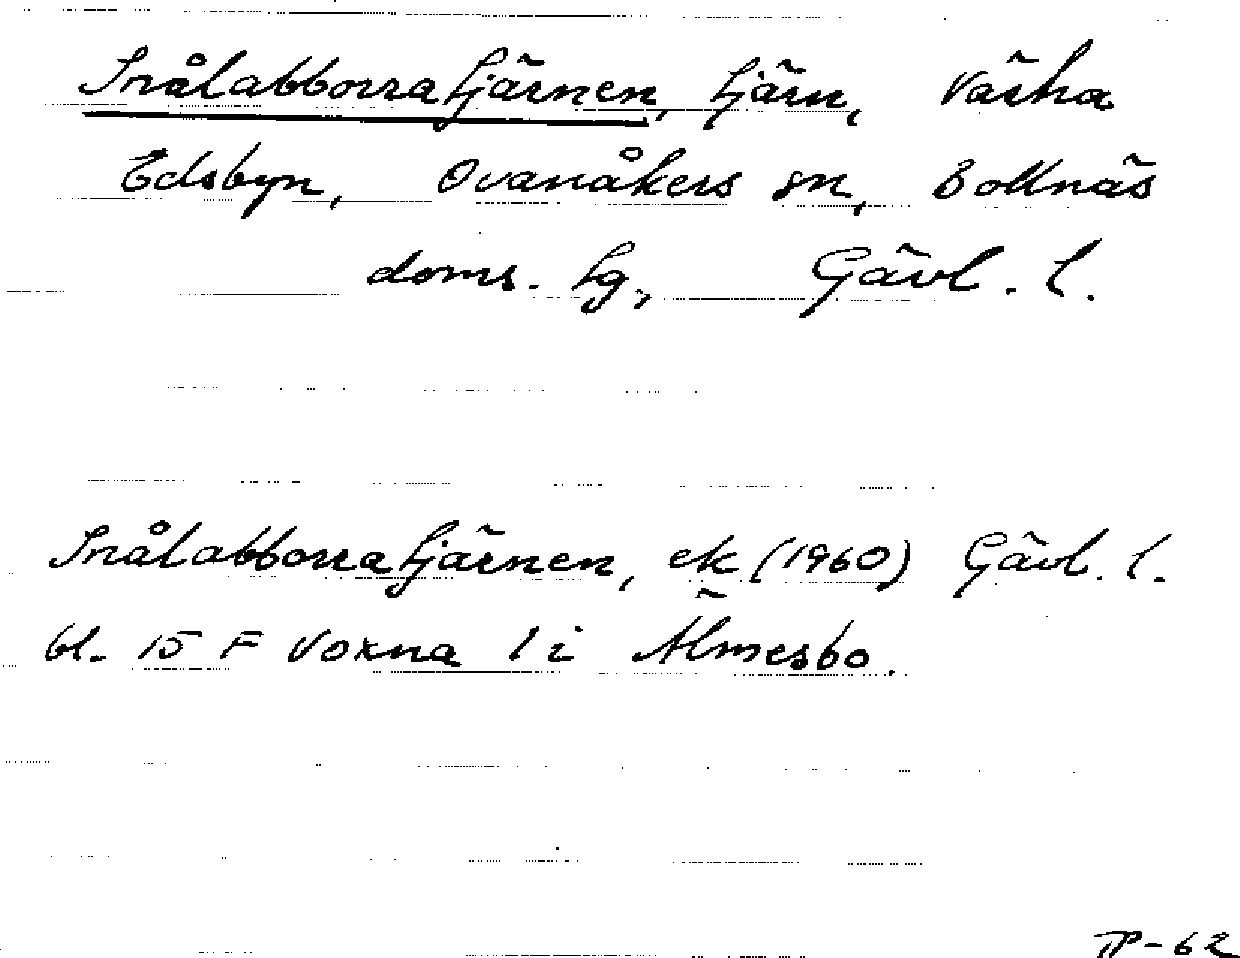 Snålabborratjärnen, tjärn, Västra
Edsbyn, Ovanåkers sn, Bollnäs
doms. tg, Gävl. l.
Snålabborratjärnen, ek (1960) Gävl. l.
bl. 15 F Voxna 1 i Älmesbo.
TP-62